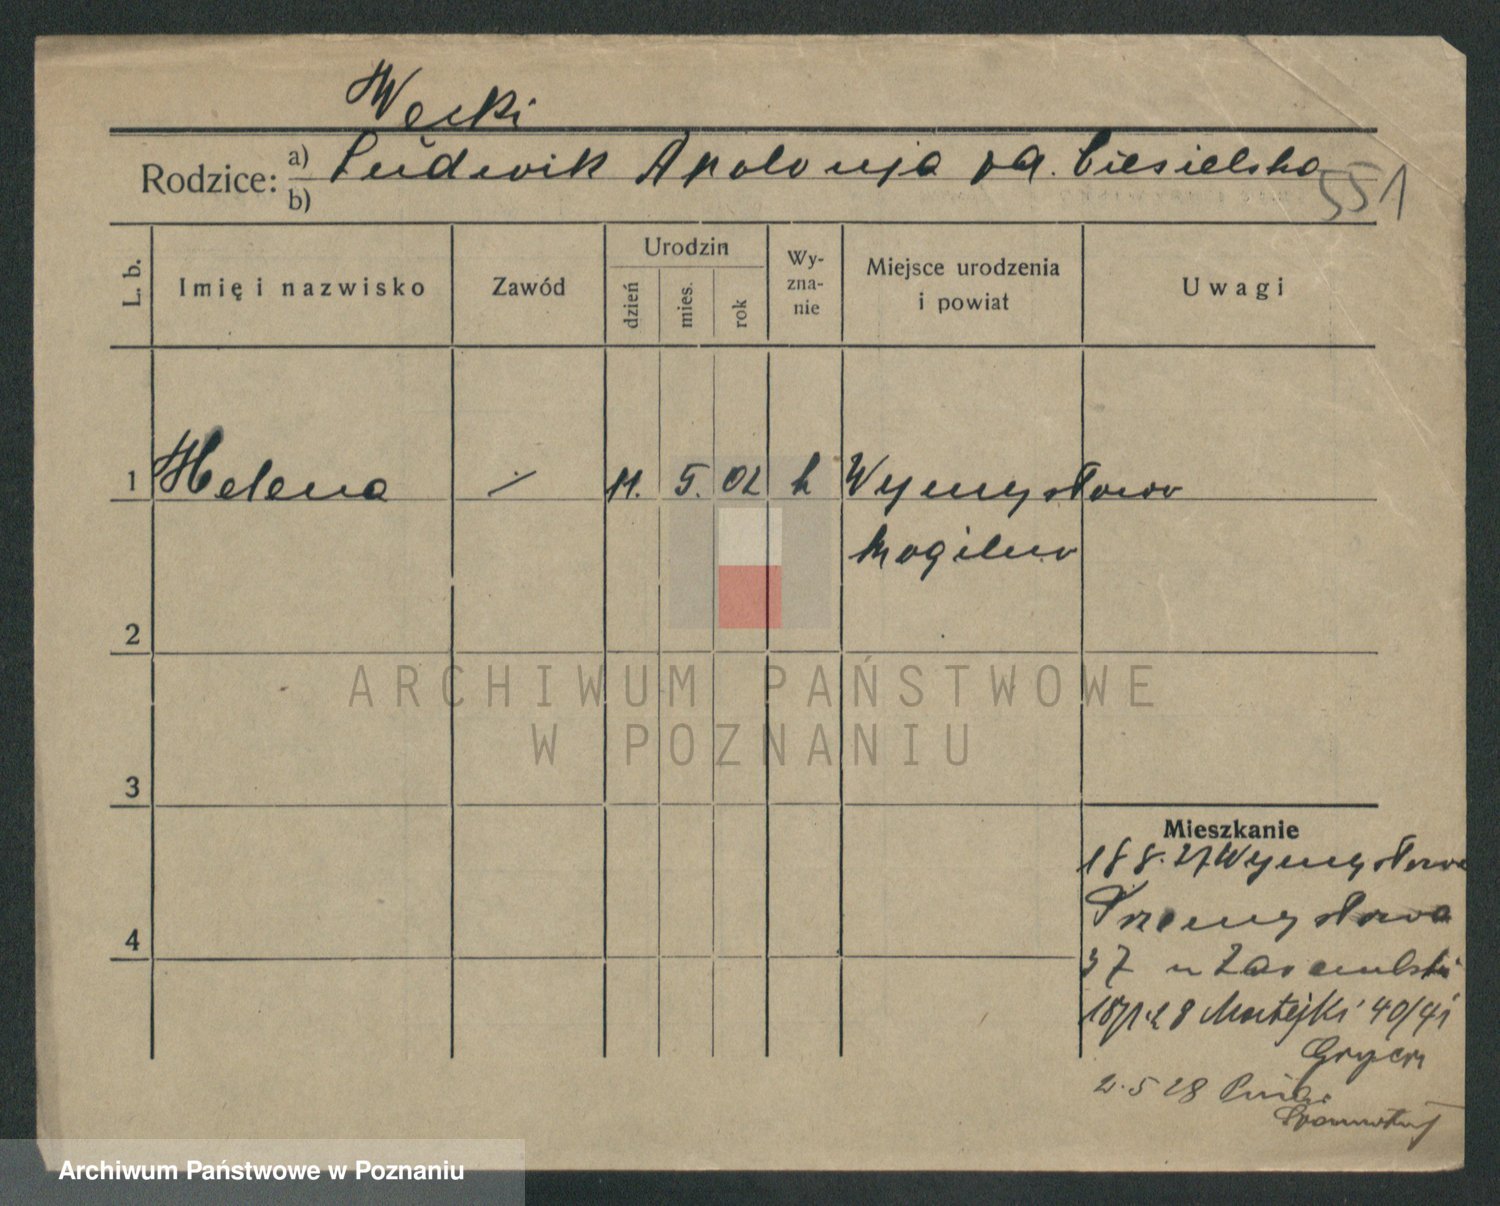 Węcki
Rodzice: a) Ludwik Apolonja zd. Ciesielska
b)
551
L. b.
Imię i nazwisko
Zawód
Urodzin
dzień
mies.
rok
Wy-
zna-
nie
Miejsce urodzenia
i powiat
Uwagi
1 Helena 11. 5. 02 k Wymysłowo
Mogilno
2
ARCHIWUM PAŃSTWOWE
W POZNANIU
3
Mieszkanie
18 8. 27 Wymysłowo
Przemysłowa
4
37 u
Matejki 40/41
2. 5 28
Archiwum Państwowe w Poznaniu